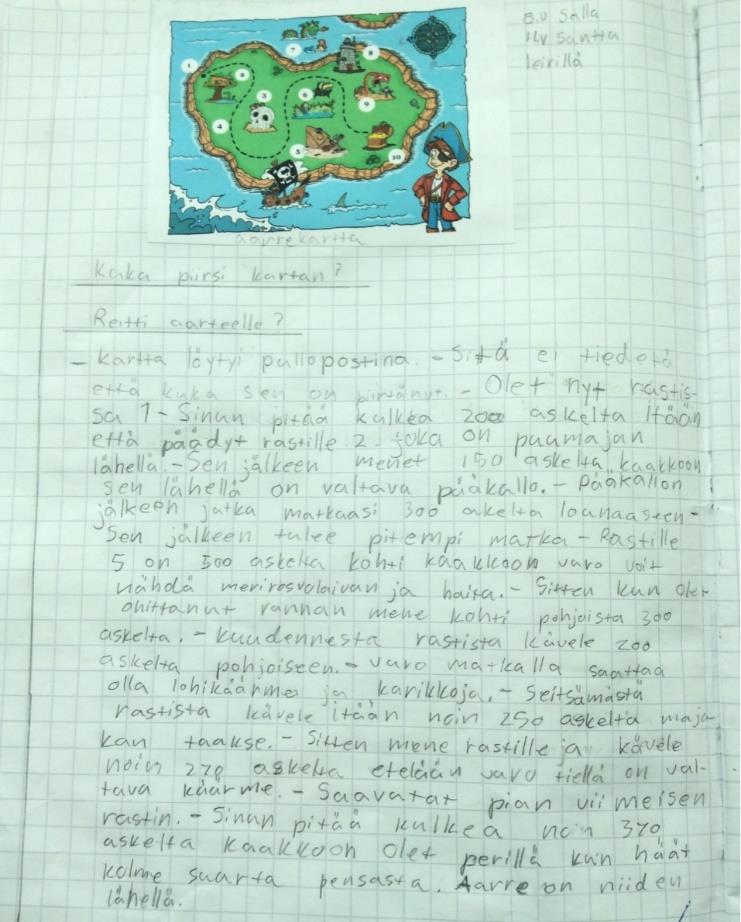 8.V Salla
14V Santta
leirillä
1
2
3
4
5
6
7
8
9
10
aarrekartta
Kuka piirsi kartan?
Reitti aarteelle?
- Kartta löytyi pullopostina. - Sitä ei tiedetä
että kuka sen on piirtänyt. - Olet nyt rastis-
sa 1 - Sinun pitää kulkea 200 askelta Itään
että päädyt rastille 2. joka on puumajan
lähellä. - Sen jälkeen menet 150 askelta kaakkoon
sen lähellä on valtava pääkallo. - Pääkallon
jälkeen jatka matkaasi 300 akelta lounaaseen -
Sen jälkeen tulee pitempi matka - Rastille
5 on 500 askelta kohti kaakkoon varo voit
nähdä merirosvolaivan ja haita. - Sitten kun olet
ohittanut rannan mene kohti pohjoista 300
askelta. - kuudennesta rastista kävele 200
askelta pohjoiseen. - varo matkalla saattaa
olla lohikäärme ja karikkoja. - Seitsämästä
rastista kävele itään noin 250 askelta maja-
kan taakse. - Sitten mene rastille ja kävele
noin 270 askelta etelään varo tiellä on val-
tava käärme. - Saavatat pian viimeisen
rastin. - Sinun pitää kulkea noin 370
askelta kaakkoon Olet perillä kun näät
kolme suurta pensasta. Aarre on niiden
lähellä.